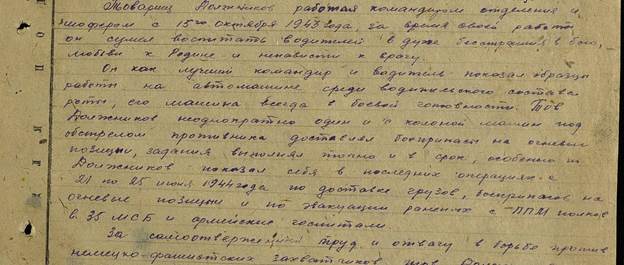 Товарищ Должников работая командиром отделения и
шофером с 15го октября 1943 года, за время своей работы
он сумел воспитать водителей в духе бесстрашия в бою,
любви к Родине и ненависти к врагу.
Он как лучший командир и водитель показал образцы
работы на автомашине, среди водительского состава
роты, его машина всегда в боевой готовности. Тов
Должников неоднократно один и с колоной машин под
обстрелом противника доставлял боеприпасы на огневые
позиции, задания выполнял точно и в срок, особенно т.
Должников показал себя в последних операциях с
21 по 25 июня 1944 года по доставке грузов, боеприпасов на
огневые позиции и по эвакуации раненых с ППМ полков
в 35 МСБ и армейские госпитали.
За самоотверженный труд и отвагу в борьбе против
немецко-фашистских захватчиков тов.